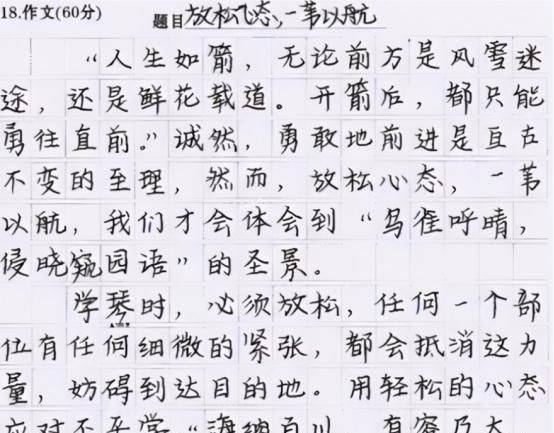 18.作文(60分) 题目 放松心态,一苇以航
“人生如箭，无论前方是风雪迷
途，还是鲜花载道。开箭后，都只能
勇往直前。”诚然，勇敢地前进是亘古
不变的至理，然而，放松心态，一苇
以航，我们才会体会到“鸟雀呼晴，
侵晓窥园语”的圣景。
学琴时，必须放松，任何一个部
位有任何细微的紧张，都会抵消这力
量，妨碍到达目的地。用轻松的心态
应对不平常“海纳百川，有容乃大